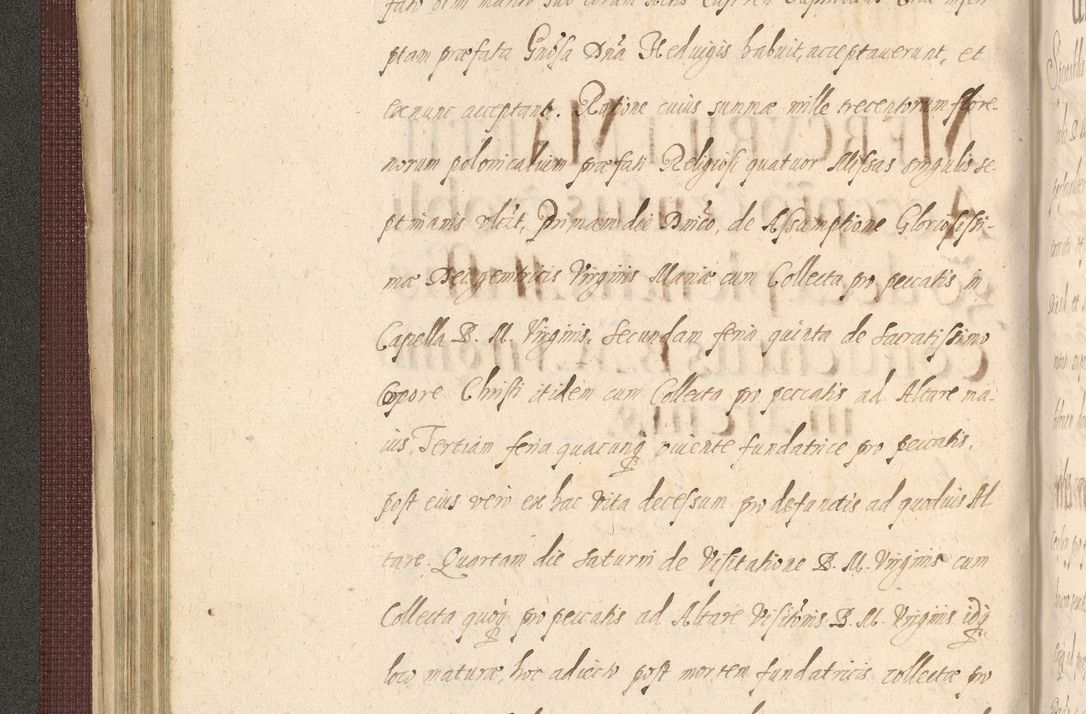 ptam præfata Gnosa Dna Hedvigis habuit, acceptaverunt, et
ex nunc acceptant. Ratione cuius summæ mille trecentorum flore-
norum polonicalium præfati Religiosi quatuor Missas singulis se-
ptimanis vlzt. Primam die Dnico, de Assumptione Gloriosissi-
mæ Deigenitricis Virginis Mariæ cum Collecta pro peccatis in
Capella B. M. Virginis. Secundam feria quinta de Sacratissimo
Corpore Christi itidem cum Collecta pro peccatis ad Altare ma-
ius, Tertiam feria quacunq vivente fundatrice pro peccatis,
post eius vero ex hac vita decessum pro defunctis ad quodvis Al
tare. Quartam die Saturni de Visitatione B. M. Virginis cum
Collecta quoq pro peccatis ad Altare Visitonis B. M. Virginis idq
loco maturæ, hoc adiecto post mortem fundatricis collectæ pro